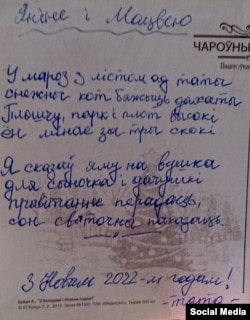 Яніне і Мацвею
ЧАРОЎНЫ
У мароз з лістом ад таты
снежны кот бяжыць дахаты
Плошчу, парк і плот высокі
ён мінае за тры скокі
Я сказаў яму на вушка
для сыночка і дачушкі
прывітанне перадаць,
сон святочны паказаць.
З Новым 2022-м годам!
-тата-
Social Media